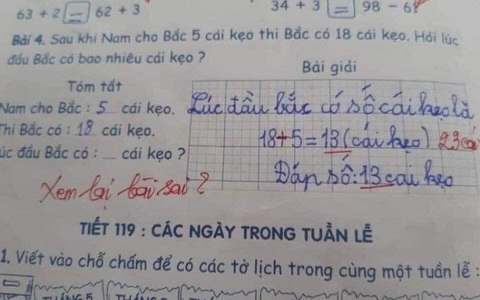 63 + 2 = 62 + 3 34 + 3 = 98 - 61
Bài 4. Sau khi Nam cho Bắc 5 cái kẹo thì Bắc có 18 cái kẹo. Hỏi lúc
đầu Bắc có bao nhiêu cái kẹo ?
Tóm tắt
Bài giải
Nam cho Bắc : 5 cái kẹo.
Lúc đầu bắc có số cái kẹo là
Thì Bắc có : 18 cái kẹo.
18+5=13(cái kẹo) 23cá
úc đầu Bắc có : ... cái kẹo ?
Đáp số:13 cái kẹo
Xem lại bài sai?
TIẾT 119 : CÁC NGÀY TRONG TUẦN LỄ
1. Viết vào chỗ chấm để có các tờ lịch trong cùng một tuần lễ :
THÁNG 5